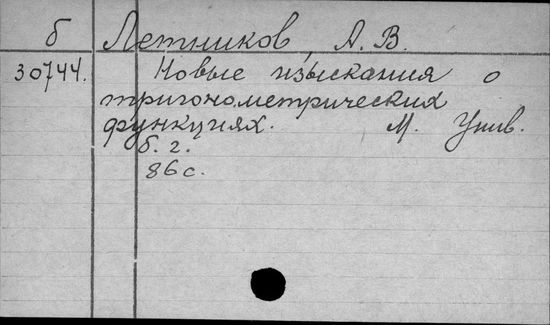 б Летников, А. В.
30744. Новые изыскания о
тригонометрических
функциях. М. Унив.
б. г.
86 с.